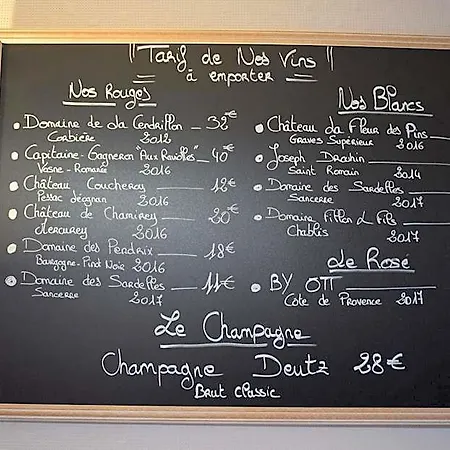 "Tarif de Nos Vins"
à emporter
Nos Rouges
Domaine de la Cendrillon 32€
Corbière 2012
Capitaine-Gagneron "Aux Raviolles" 40€
Vosne-Romanée 2016
Château Coucheroy 12€
Pessac Léognan 2015
Château de Chamirey 20€
Mercurey 2016
Domaine des Perdrix 18€
Bourgogne-Pinot Noir 2016
Domaine des Sardelles 11€
Sancerre 2017
Nos Blancs
Château La Fleur des Pins
Graves Supérieur 2016
Joseph Drouhin
Saint Romain 2014
Domaine des Sardelles
Sancerre 2017
Domaine Fillon & Fils
Chablis 2017
Le Rosé
BY OTT
Cote de Provence 2017
Le Champagne
Champagne Deutz 28€
Brut Classic